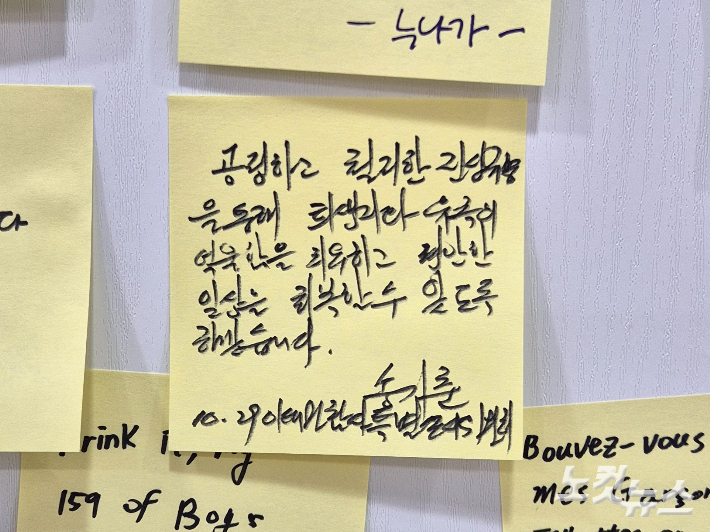 - 늑나가 -
다
공림하고 철저한 진상규명
을 통해 희생자와 유족의
억울함을 위로하고 편안한
일상을 회복할 수 있도록
하겠습니다.
송기춘
10.29 이태원참사 특별조사위원회
Drink it, my
159 of Boys
Bouvez-vous
mes Garson
노컷뉴스